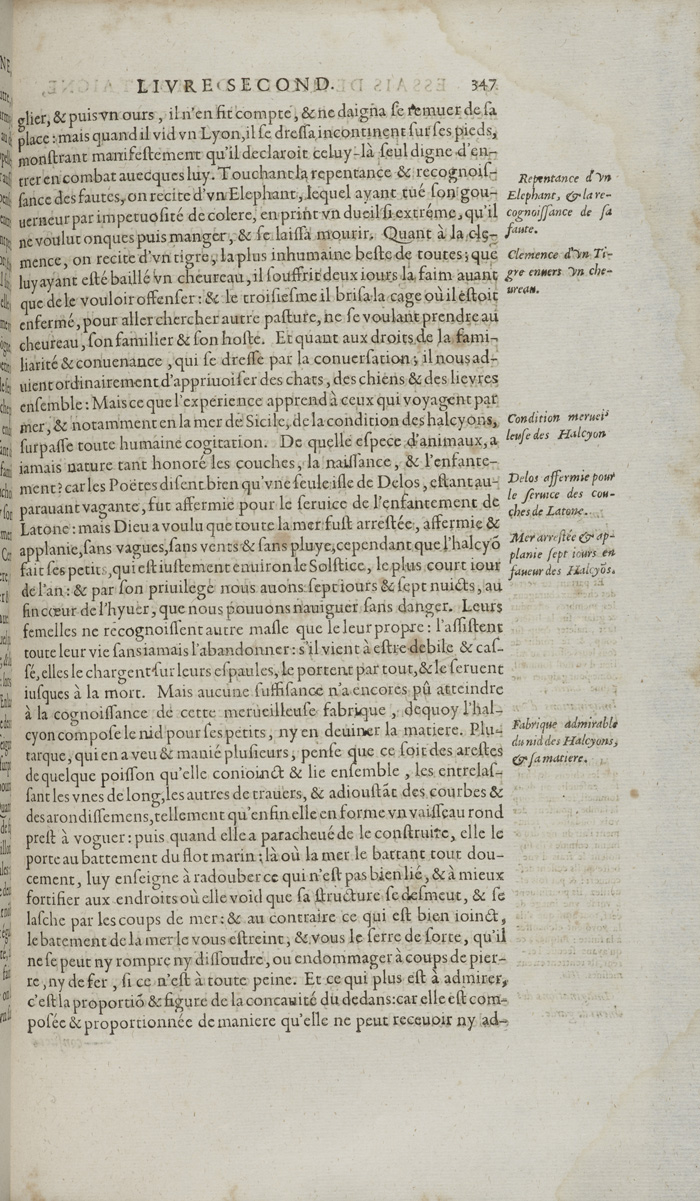 LIVRE SECOND. 347
glier, & puis vn ours, il n'en fit compte, & ne daigna se remuer de sa
place: mais quand il vid vn Lyon, il se dressa incontinent sur ses pieds,
monstrant manifestement qu'il declaroit celuy-là seul digne d'en-
trer en combat auecques luy. Touchant la repentance & recognois-
sance des fautes, on recite d'vn Elephant, lequel ayant tué son gou-
uerneur par impetuosité de colere, en print vn dueil si extréme, qu'il
ne voulut onques puis manger, & se laissa mourir. Quant à la cle-
mence, on recite d'vn tigre, la plus inhumaine beste de toutes; que
luy ayant esté baillé vn cheureau, il souffrit deux iours la faim auant
que de le vouloir offenser: & le troisiesme il brisa la cage où il estoit
enfermé, pour aller chercher autre pasture, ne se voulant prendre au
cheureau, son familier & son hoste. Et quant aux droits de la fami-
liarité & conuenance, qui se dresse par la conuersation; il nous ad-
uient ordinairement d'appriuoiser des chats, des chiens & des lievres
ensemble: Mais ce que l'experience apprend à ceux qui voyagent par
mer, & notamment en la mer de Sicile, de la condition des halcyons,
surpasse toute humaine cogitation. De quelle espece d'animaux, a
iamais nature tant honoré les couches, la naissance, & l'enfante-
ment? car les Poëtes disent bien qu'vne seule isle de Delos, estant au-
parauant vagante, fut affermie pour le seruice de l'enfantement de
Latone: mais Dieu a voulu que toute la mer fust arrestée, affermie &
applanie, sans vagues, sans vents & sans pluye, cependant que l'halcyõ
fait ses petits, qui est iustement enuiron le Solstice, le plus court iour
de l'an: & par son priuilege nous auons sept iours & sept nuicts, au
fin cœur de l'hyuer, que nous pouuons nauiguer sans danger. Leurs
femelles ne recognoissent autre masle que le leur propre: l'assistent
toute leur vie sans iamais l'abandonner: s'il vient à estre debile & cas-
sé, elles le chargent sur leurs espaules, le portent par tout, & le seruent
iusques à la mort. Mais aucune suffisance n'a encores pû atteindre
à la cognoissance de cette merueilleuse fabrique, dequoy l'hal-
cyon compose le nid pour ses petits, ny en deuiner la matiere. Plu-
tarque, qui en a veu & manié plusieurs, pense que ce soit des arestes
de quelque poisson qu'elle conioinct & lie ensemble, les entrelas-
sant les vnes de long, les autres de trauers, & adioustât des courbes &
des arondissemens, tellement qu'enfin elle en forme vn vaisseau rond
prest à voguer: puis quand elle a paracheué de le construire, elle le
porte au battement du flot marin; là où la mer le battant tout dou-
cement, luy enseigne à radouber ce qui n'est pas bien lié, & à mieux
fortifier aux endroits où elle void que sa structure se desmeut, & se
lasche par les coups de mer: & au contraire ce qui est bien ioinct,
le batement de la mer le vous estreint, & vous le serre de sorte, qu'il
ne se peut ny rompre ny dissoudre, ou endommager à coups de pier-
re, ny de fer, si ce n'est à toute peine. Et ce qui plus est à admirer,
c'est la proportiõ & figure de la concauité du dedans: car elle est com-
posée & proportionnée de maniere qu'elle ne peut receuoir ny ad-
Repentance d'vn
Elephant, & la re-
cognoissance de sa
faute.
Clemence d'vn Ti-
gre enuers vn che-
ureau.
Condition merueil
leuse des Halcyon
Delos affermie pour
le seruice des cou-
ches de Latone.
Mer arrestée & ap-
planie sept iours en
faueur des Halcyõs.
Fabrique admirable
du nid des Halcyons,
& sa matiere.